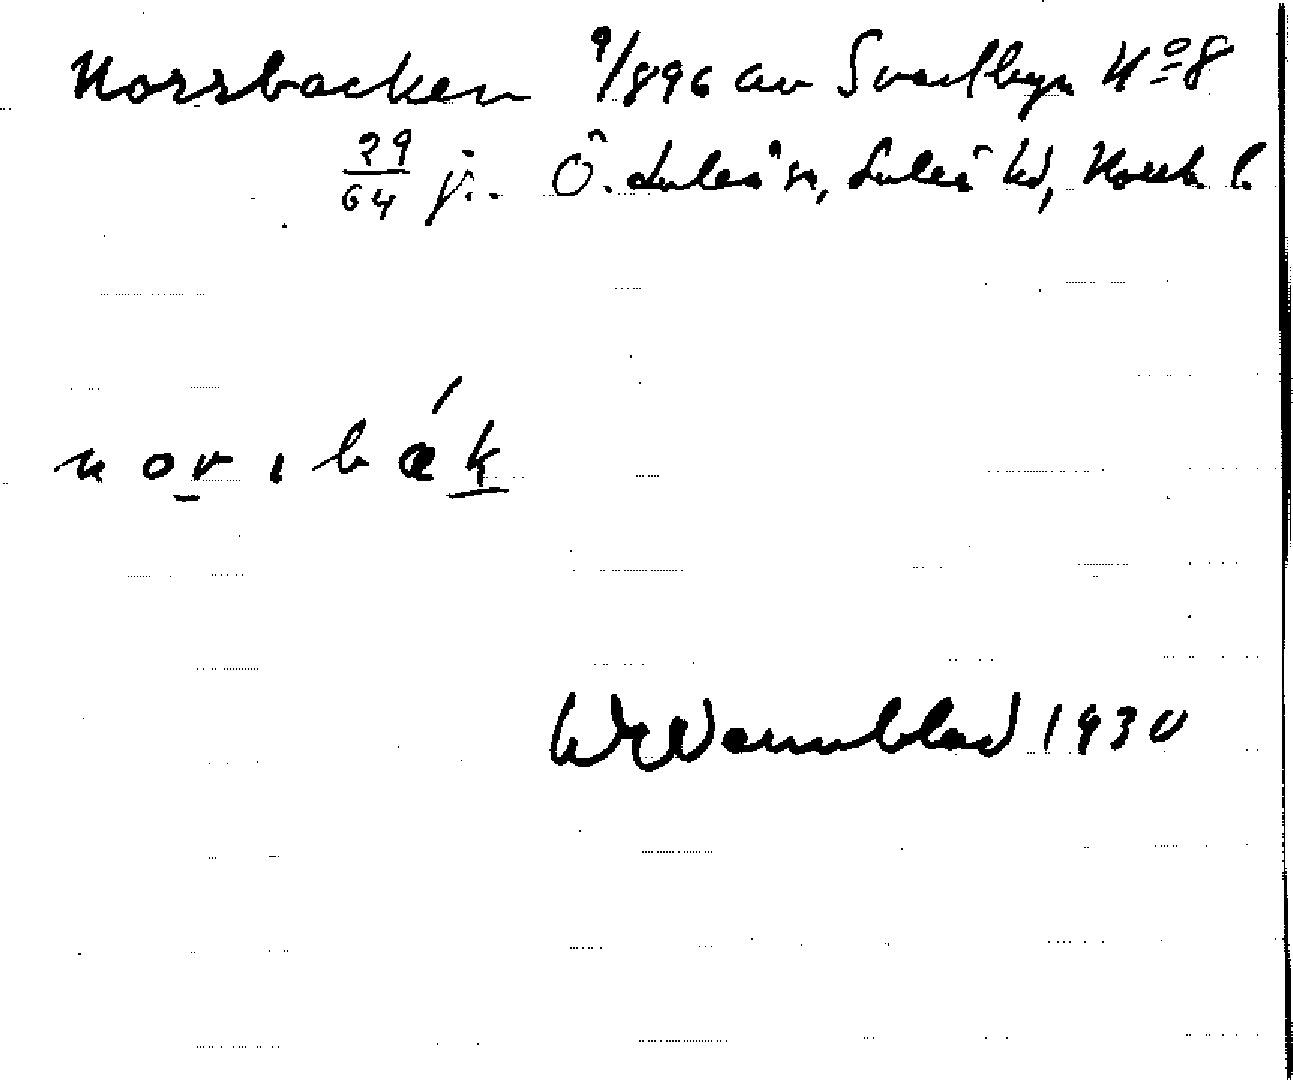 Norrbacken 9/896 av Svartbyn Nº 8
29/64 j. Ö. Luleå sn, Luleå td, Norrb. l.
norıbák
Wennblad 1930